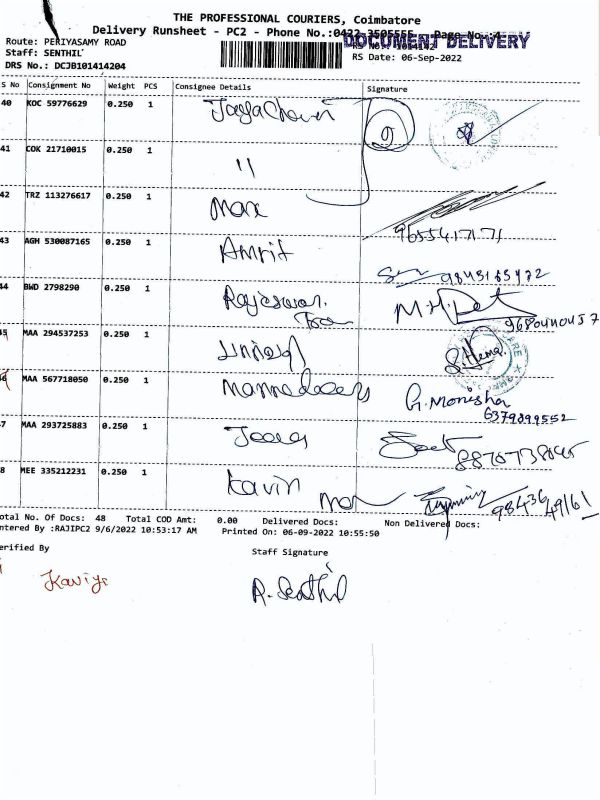 THE PROFESSIONAL COURIERS, Coimbatore
Delivery Runsheet - PC2 - Phone No.:0422-3505555 Page No.:4
DOCUMENT DELIVERY
Route: PERIYASAMY ROAD
Staff: SENTHIL
RS Date: 06-Sep-2022
DRS No.: DCJB101414204
S No Consignment No Weight PCS Consignee Details Signature
40 KOC 59776629 0.250 1
41 COK 21710015 0.250 1 11
42 TRZ 113276617 0.250 1 Max
9655417171
43 AGH 530087165 0.250 1 Amrit
44 BWD 2798290 0.250 1
MAA 294537253 0.250 1 S. Hema
MAA 567718050 0.250 1 G. Monisha
6379899552
7 MAA 293725883 0.250 1
8 MEE 335212231 0.250 1 Kavin
98436 49161
otal No. Of Docs: 48 Total COD Amt: 0.00 Delivered Docs: Non Delivered Docs:
ntered By :RAJIPC2 9/6/2022 10:53:17 AM Printed On: 06-09-2022 10:55:50
erified By Staff Signature
Kaviya R. Senthil